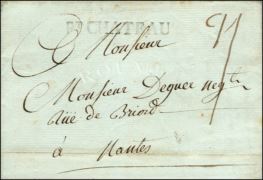 CHATEAU
Monsieur
Monsieur Deguer neg.t
Rüe de Briord
à Nantes